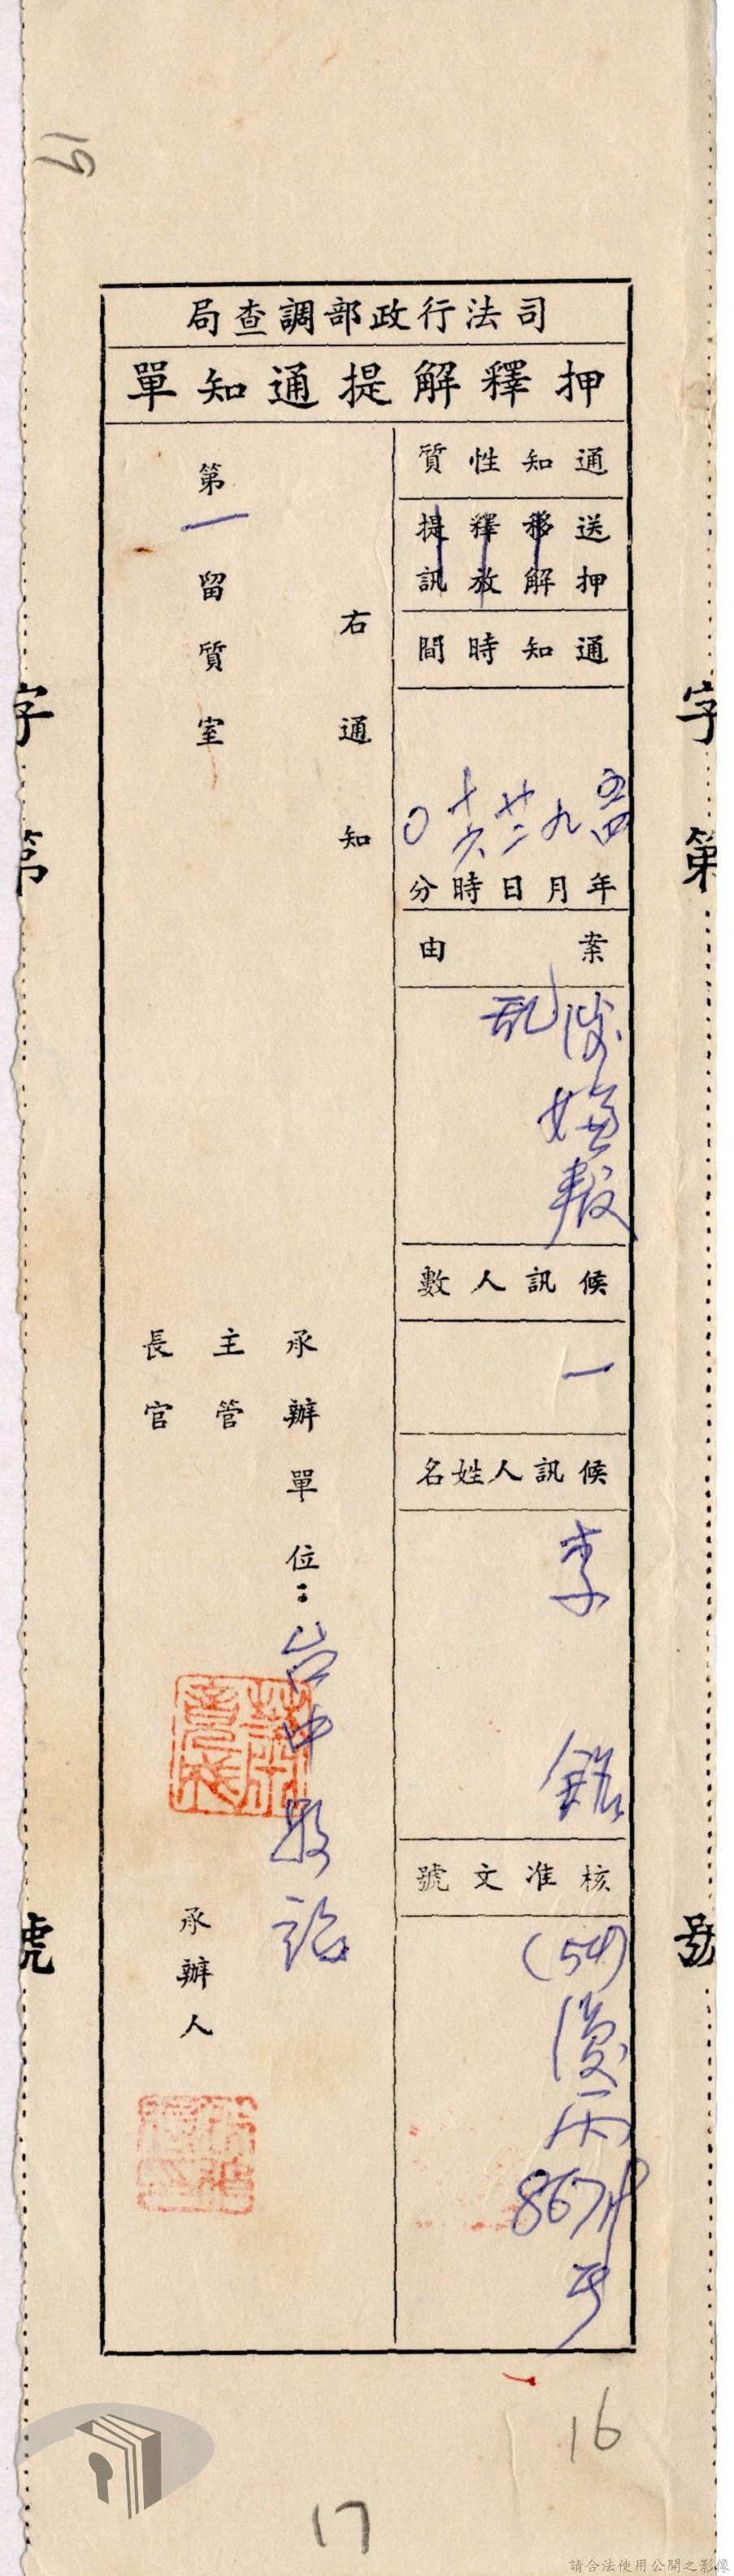 司法行政部調查局
押釋解提通知單
通知性質
送押
移解
釋放
提訊
通知時間
五四年
九月
廿二日
十六時
〇分
案由
涉嫌叛
亂
候訊人數
一
候訊人姓名
李
核准文號
(54)
號
右通知
第一留質室
承辦單位：台中
主管
長官
承辦人
字第
號
字第
號
19
16
17
請合法使用公開之影像